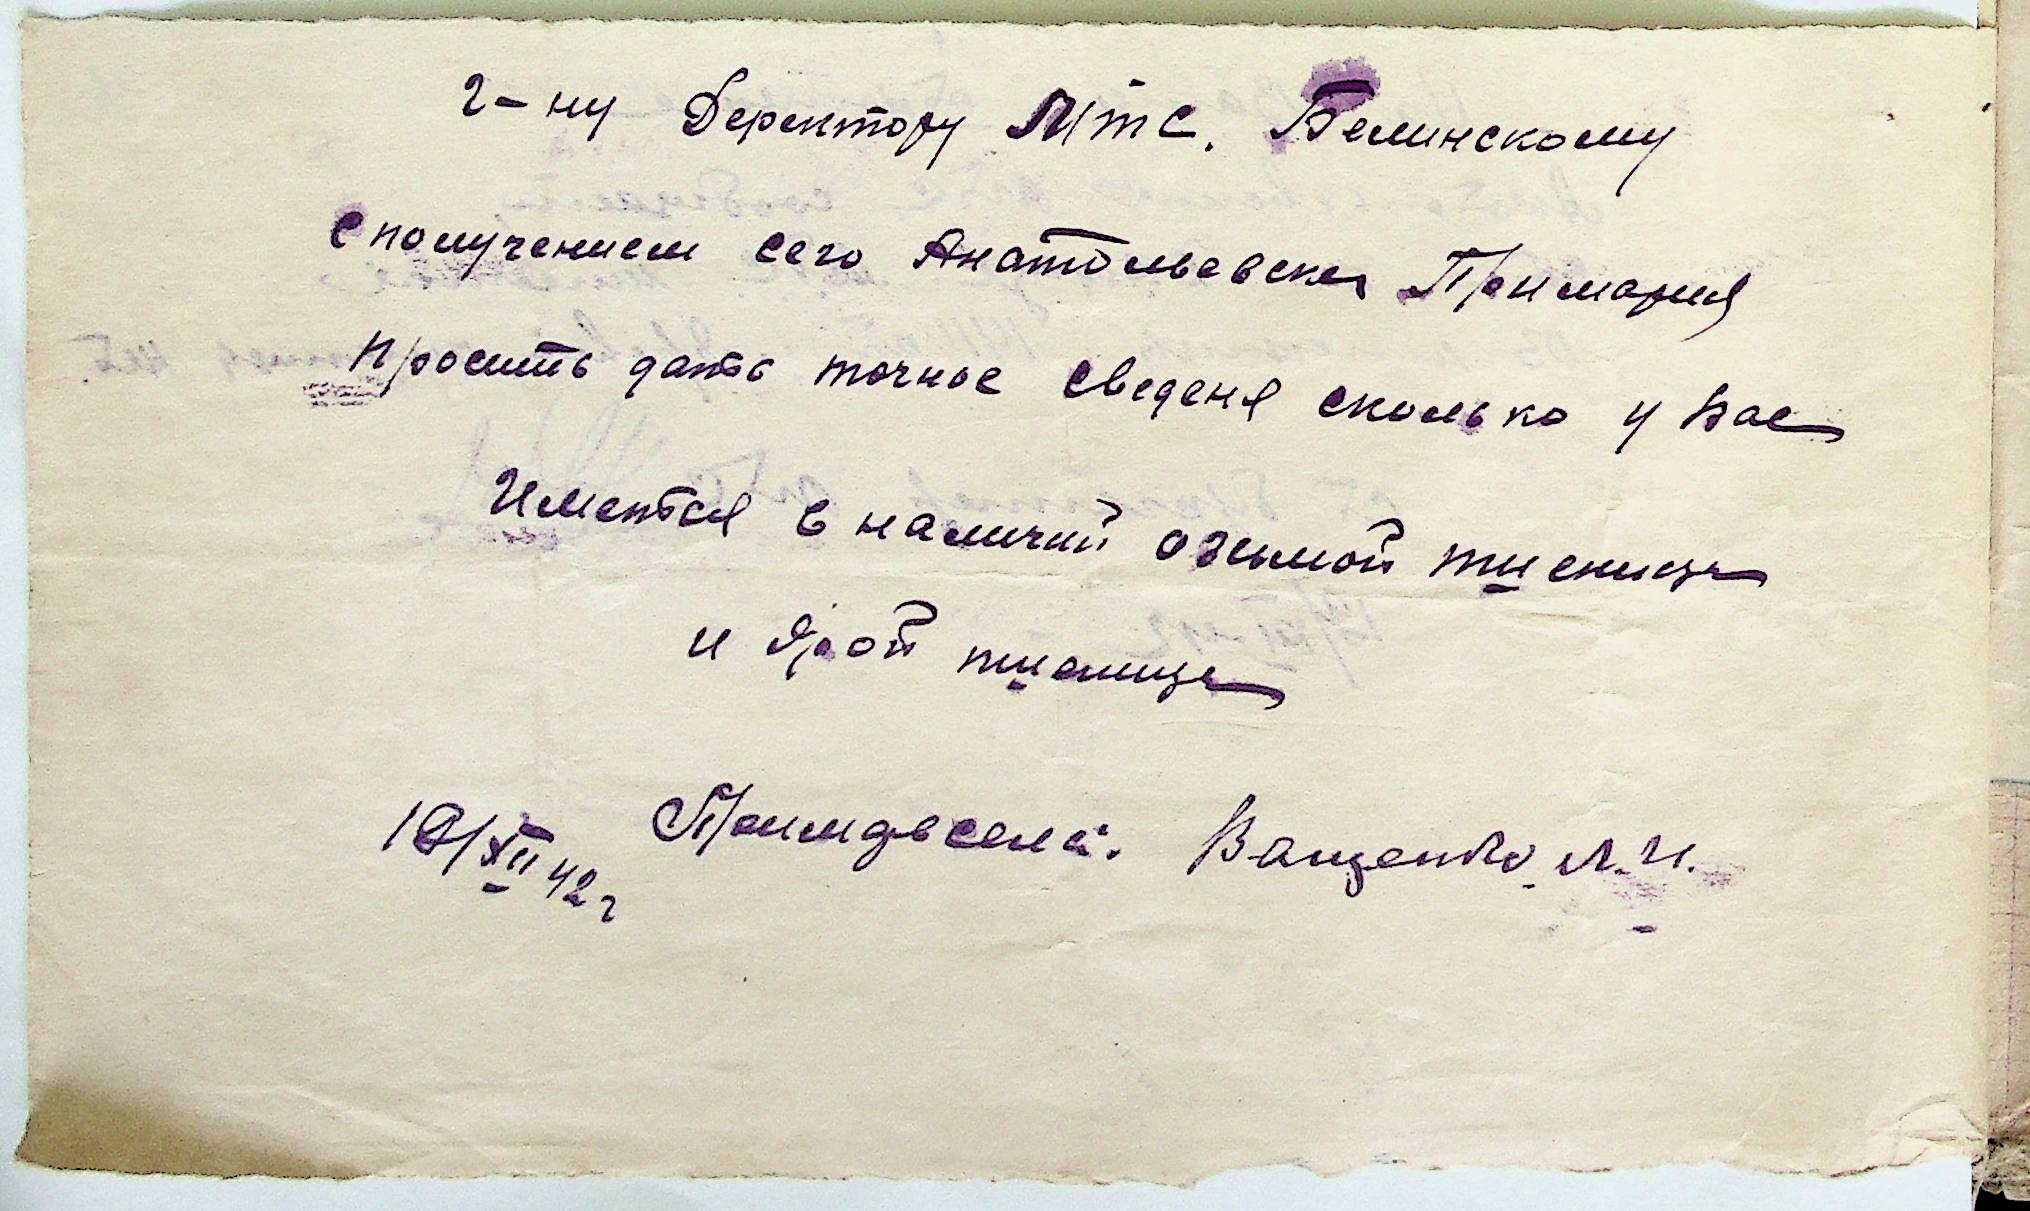 г-ну Деректору МТС. Белинскому
С получением сего Анатольевская Примария
просить дать точное сведеня сколько у Вас
Имеится в наличий озымой пшеницы
и Ярой пшеницы
12/XII 42 г Примарь села. Ващенко Л. И.